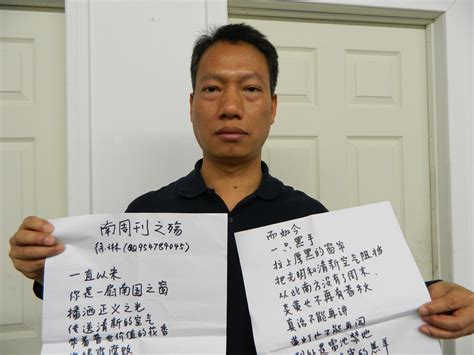 南周刊之殇
徐琳(QQ954789045)
一直以来
你是一扇南国之窗
播洒正义之光
传送清新的空气
带着普世价值的花香
而如今
一只黑手
拉上厚黑的窗帘
把光明和清新空气阻挡
从此南方没有了周末
炎黄也不再有春秋
真话不能再讲